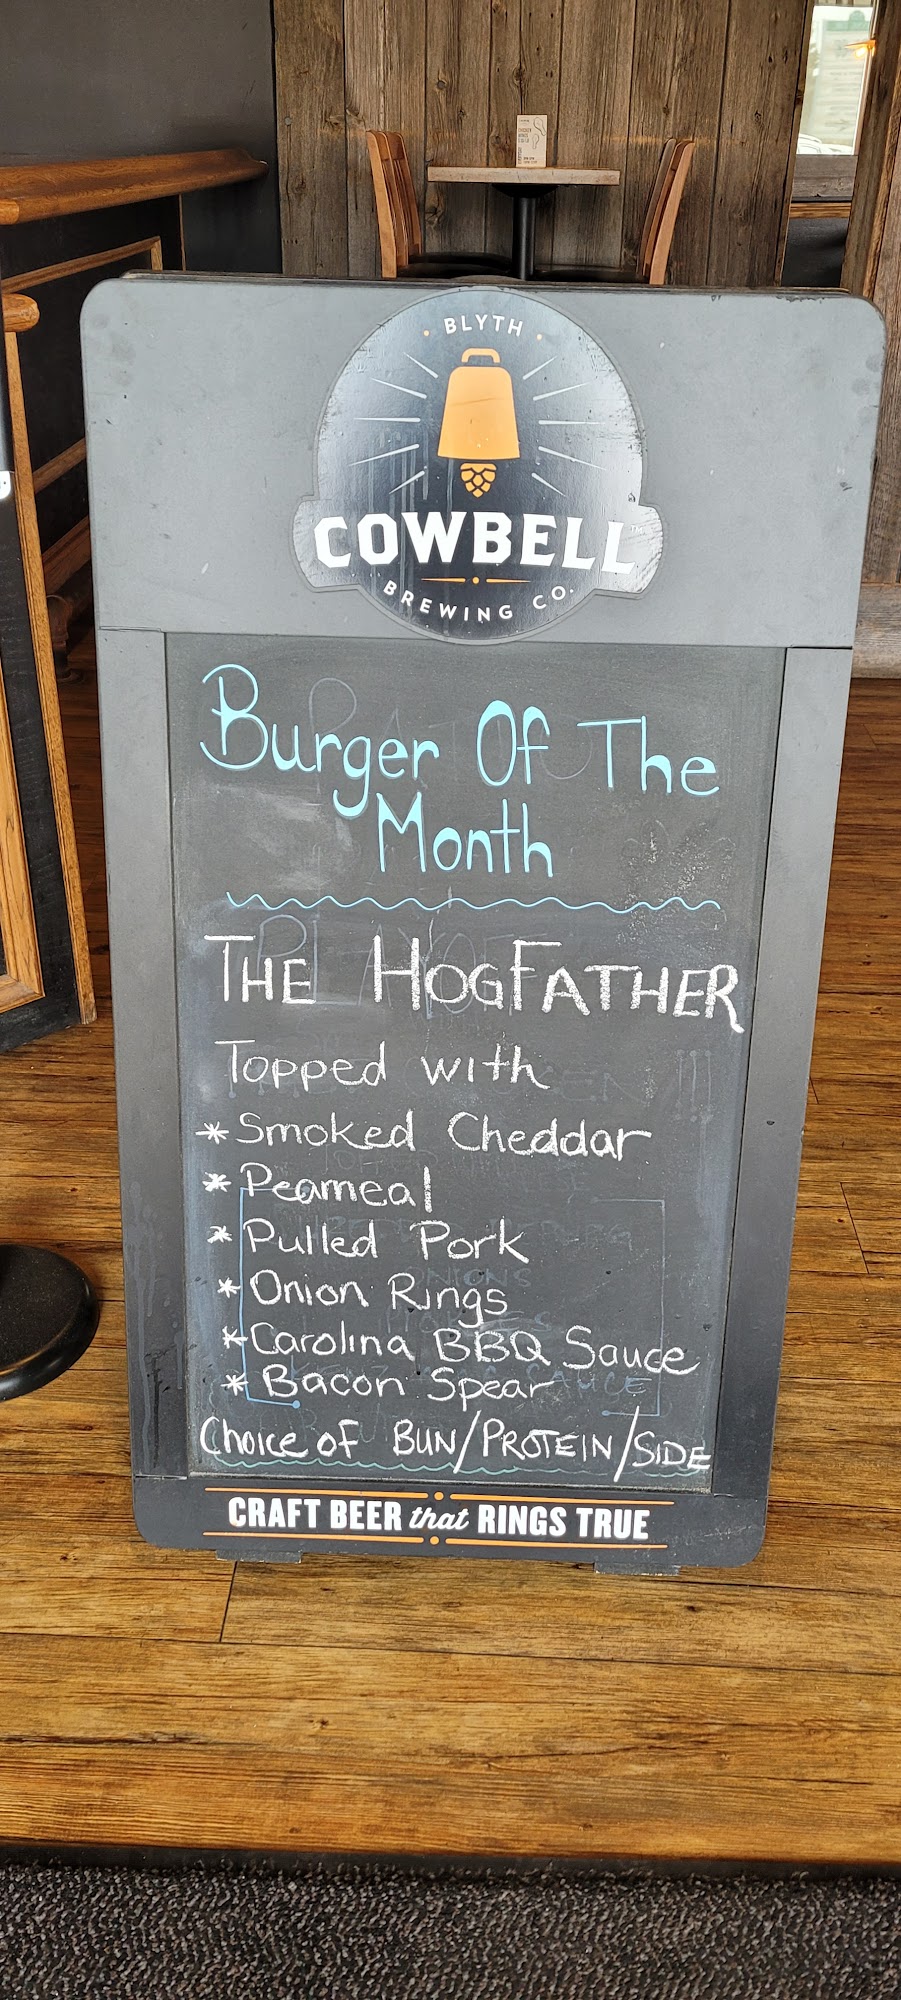 BLYTH
COWBELL™
BREWING CO.
Burger Of The
Month
THE HOGFATHER
Topped with
* Smoked Cheddar
* Peameal
* Pulled Pork
* Onion Rings
* Carolina BBQ Sauce
* Bacon Spear
Choice of BUN/PROTEIN/SIDE
CRAFT BEER that RINGS TRUE